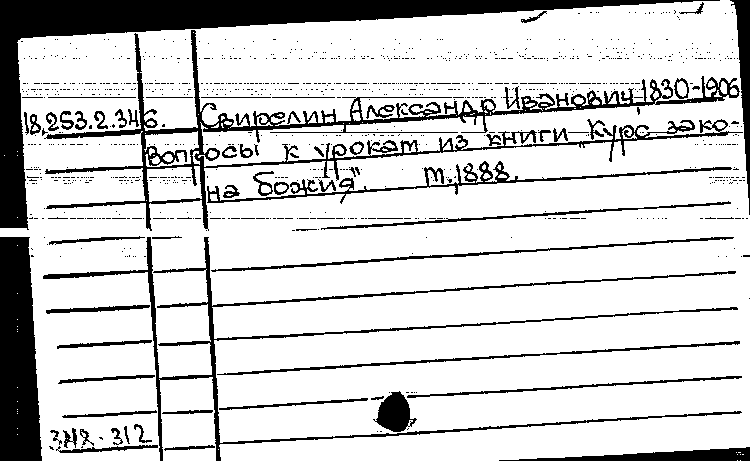 18,253.2.346. Свирелин, Александр Иванович, 1830-1906
Вопросы к урокам из книги „Курс зако-
на божия". М., 1888.
312